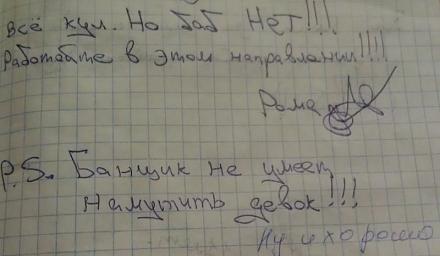 Всё кул. Но баб Нет!!!
Работайте в этом направлении!!!!
Рома
P.S. Банщик не умеет
Намутить девок!!!
Ну и хорошо